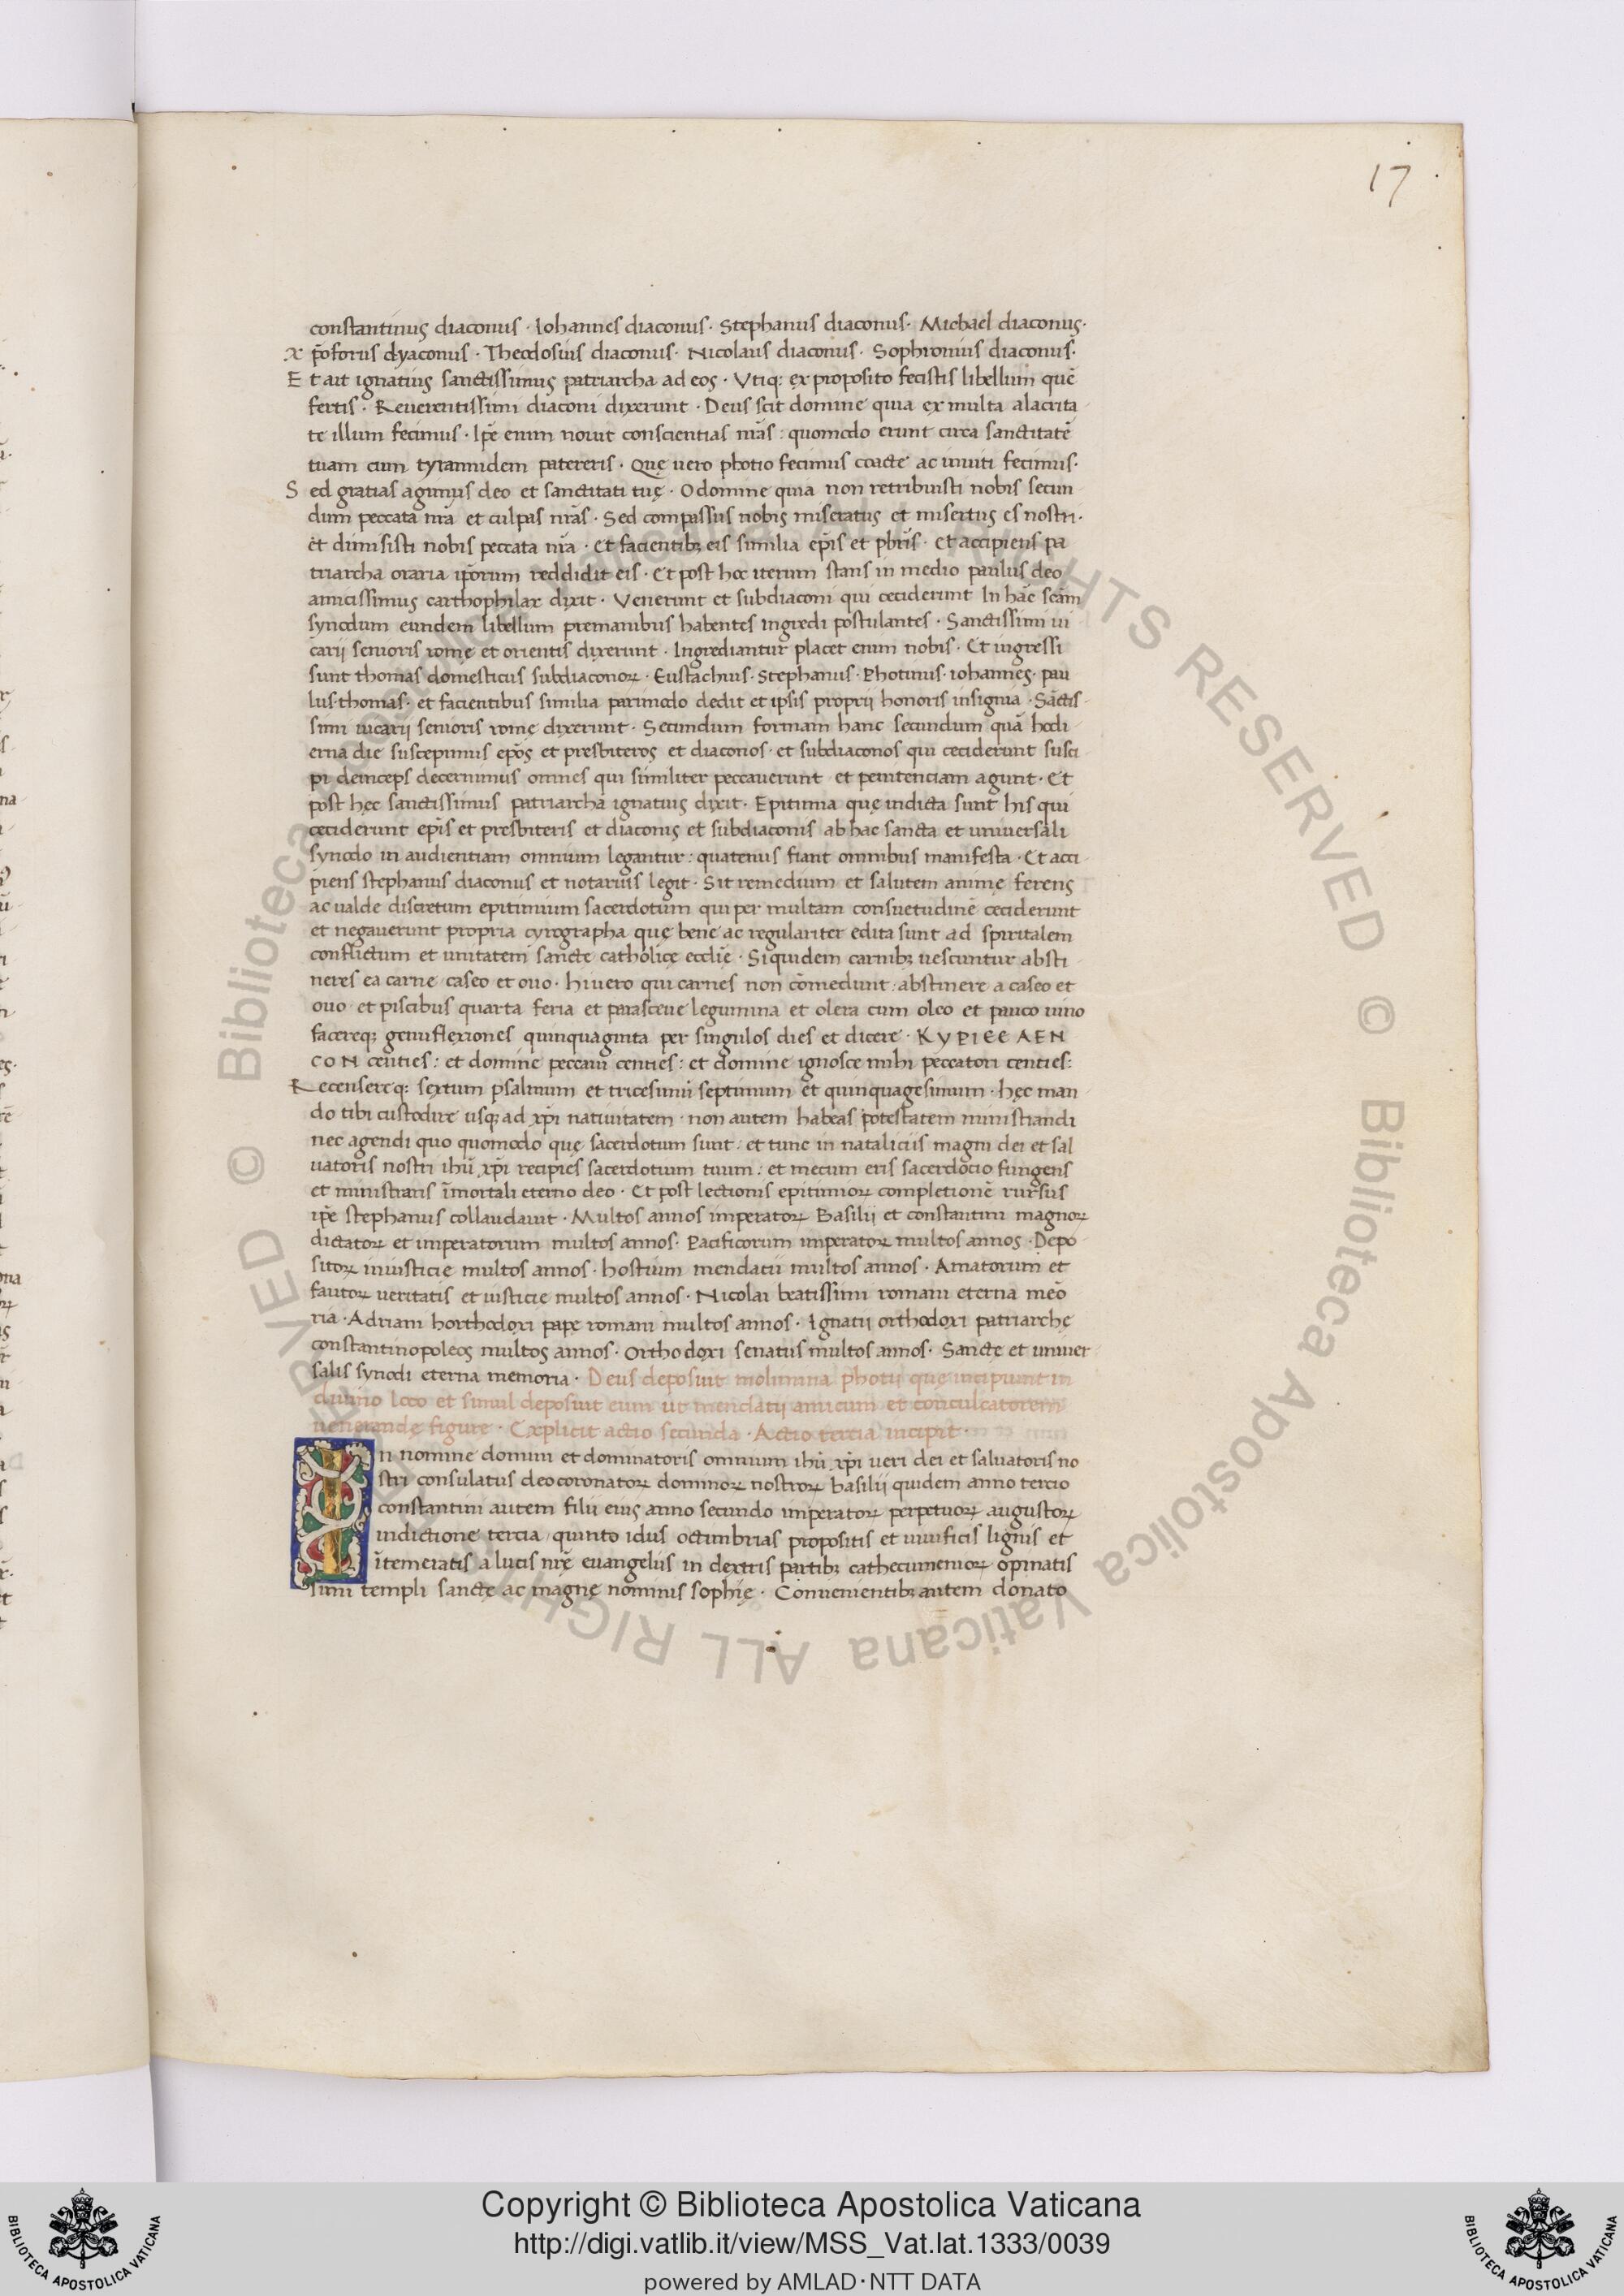 17
constantinus diaconus · Iohannes diaconus · Stephanus diaconus · Michael diaconus ·
xp̄oforus dyaconus · Theodosius diaconus · Nicolaus diaconus · Sophronius diaconus ·
Et ait ignatius sanctissimus patriarcha ad eos · Vtiq; ex proposito fecistis libellum quē
fertis · Reuerentissimi diaconi dixerunt · Deus scit domine quia ex multa alacrita
te illum fecimus · Ip̄e enim nouit conscientias nr̄as : quomodo erunt circa sanctitatē
tuam cum tyrannidem patereris · Quę uero photio fecimus coacte ac inuiti fecimus ·
Sed gratias agimus deo et sanctitati tuę · O domine quia non retribuisti nobis secun
dum peccata nr̄a et culpas nr̄as · Sed compassus nobis miseratus et misertus es nostri ·
et dimisisti nobis peccata nr̄a · Et facientibꝫ eis similia ep̄is et pbr̄is · Et accipiens pa
triarcha oraria ip̄orum reddidit eis · Et post hoc iterum stans in medio paulus deo
amicissimus carthophilax dixit · Venerunt et subdiaconi qui ceciderunt In hāc scām
synodum eundem libellum premanibus habentes ingredi postulantes · Sanctissimi ui
carii senioris romę et orientis dixerunt · Ingrediantur placet enim nobis · Et ingressi
sunt thomas domesticus subdiaconoꝝ · Eustachius · Stephanus · Photinus · iohannes · pau
lus · thomas · et facientibus similia parimodo dedit et ipsis proprii honoris insignia · Sāctis
simi uicarii senioris romę dixerunt · Secundum formam hanc secundum quā hodi
erna die suscepimus ep̄os et presbiteros et diaconos · et subdiaconos qui ceciderunt susci
pi deinceps decernimus omnes qui similiter peccauerunt et penitenciam agunt · Et
post hęc sanctissimus patriarcha ignatius dixit · Epitimia quę indicta sunt his qui
ceciderunt ep̄is et presbiteris et diaconis et subdiaconis ab hac sancta et uniuersali
synodo in audientiam omnium legantur : quatenus fiant omnibus manifesta · Et acci
piens stephanus diaconus et notarius legit · Sit remedium et salutem animę ferens
ac ualde discretum epitimium sacerdotum qui per multam consuetudinē ceciderunt
et negauerunt propria cyrographa quę bene ac regulariter edita sunt ad spiritalem
conflictum et unitatem sanctę catholicę eccl̄ię · Siquidem carnibꝫ uescuntur absti
neres ea carne caseo et ouo · hi uero qui carnes non cōmedunt : abstinere a caseo et
ouo et piscibus quarta feria et parasceue legumina et olera cum oleo et pauco uino
facereqꝫ genuflexiones quinquaginta per singulos dies et dicere · KYPIEE AEN
CON centies : et domine peccaui centies : et domine ignosce mihi peccatori centies :
Recensereq; sextum psalmum et tricesimū septimum et quinquagesimum · hęc man
do tibi custodire usqꝫ ad xp̄i natiuitatem · non autem habeas potestatem ministrandi
nec agendi quo quomodo quę sacerdotum sunt : et tunc in nataliciis magni dei et sal
uatoris nostri ihū xp̄i recipies sacerdotium tuum : et mecum eris sacerdocio fungens
et ministrans īmortali eterno deo · Et post lectionis epitimioꝝ completionē rursus
ip̄e stephanus collaudauit · Multos annos imperatoꝝ Basilii et constantini magnoꝝ
dictatoꝝ et imperatorum multos annos · Pacificorum imperatoꝝ multos annos · Depo
sitoꝝ iniusticie multos annos · hostium mendatii multos annos · Amatorum et
fautoꝝ ueritatis et iusticie multos annos · Nicolai beatissimi romani eterna memō
ria · Adriani horthodoxi pape romani multos annos · Ignatii orthodoxi patriarchę
constantinopoleos multos annos · Orthodoxi senatus multos annos · Sanctę et uniuer
salis synodi eterna memoria · Deus deposuit molimina photii quę incipiunt in
diuino loco et simul deposuit eum ut mendatii amicum et conculcatorem
uenerandę figure · Explicit actio secunda · Actio tercia incipit ·
In nomine domini et dominatoris omnium ihū xp̄i ueri dei et saluatoris no
stri consulatus deo coronatoꝝ dominoꝝ nostroꝝ basilii quidem anno tercio
constantini autem filii eius anno secundo imperatoꝝ perpetuoꝝ augustoꝝ
indictione tercia quinto idus octimbrias propositis et uiuificis lignis et
ītemeratis a lucis nr̄ę euangeliis in dextris partibꝫ cathecumenioꝝ opinatis
simi templi sanctę ac magnę nominis sophię · Conuenientibꝫ autem donato
© Biblioteca Apostolica Vaticana ALL RIGHTS RESERVED © Biblioteca Apostolica Vaticana ALL RIGHTS RESERVED
Copyright © Biblioteca Apostolica Vaticana
http://digi.vatlib.it/view/MSS_Vat.lat.1333/0039
powered by AMLAD·NTT DATA
BIBLIOTECA APOSTOLICA VATICANA
BIBLIOTECA APOSTOLICA VATICANA